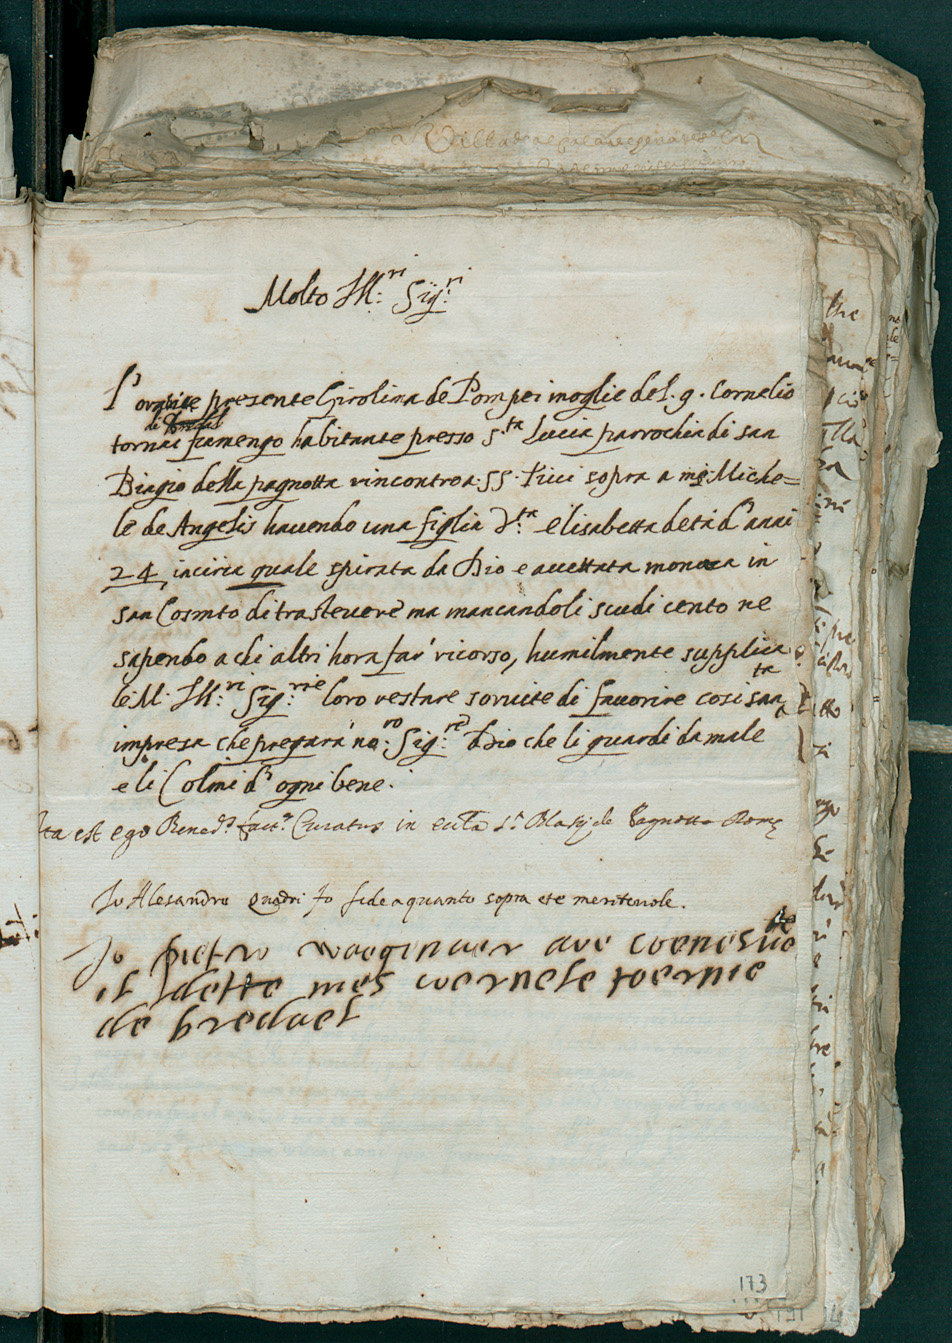 Molto Ill:ri Sig:ri
L'oratrice presente Girolima de Pompei moglie del. q. Cornelio
di Bredael
tornai fiamengo habitante presso S:ta Lucia parrochia di san
Biagio della pagnotta rincontro a SS. sopra a ms: Miche=
le de Angelis havendo una figlia d:ta elisabetta detà d'anni
24 in circa quale spirata da Dio e accettata monaca in
san Cosmto di trastevere ma mancandoli scudi cento ne
sapendo a chi altri hora far ricorso, humilmente supplica
le M: Ill:ri Sig:rie loro restare servite di favorire cosi santa
impresa che pregarà no:ro Sig:re Dio che li guardi da male
e li Colmi d' ogni bene.
Ita est ego Bened:s Curatus in eccla S.ti Blasij de Pagnotta Rome
Io Alesandro Quadri fo fede a quanto sopra et è meritevole.
Io pietro ave coenesuto
il dette mes cornele toernie
de bredael
173